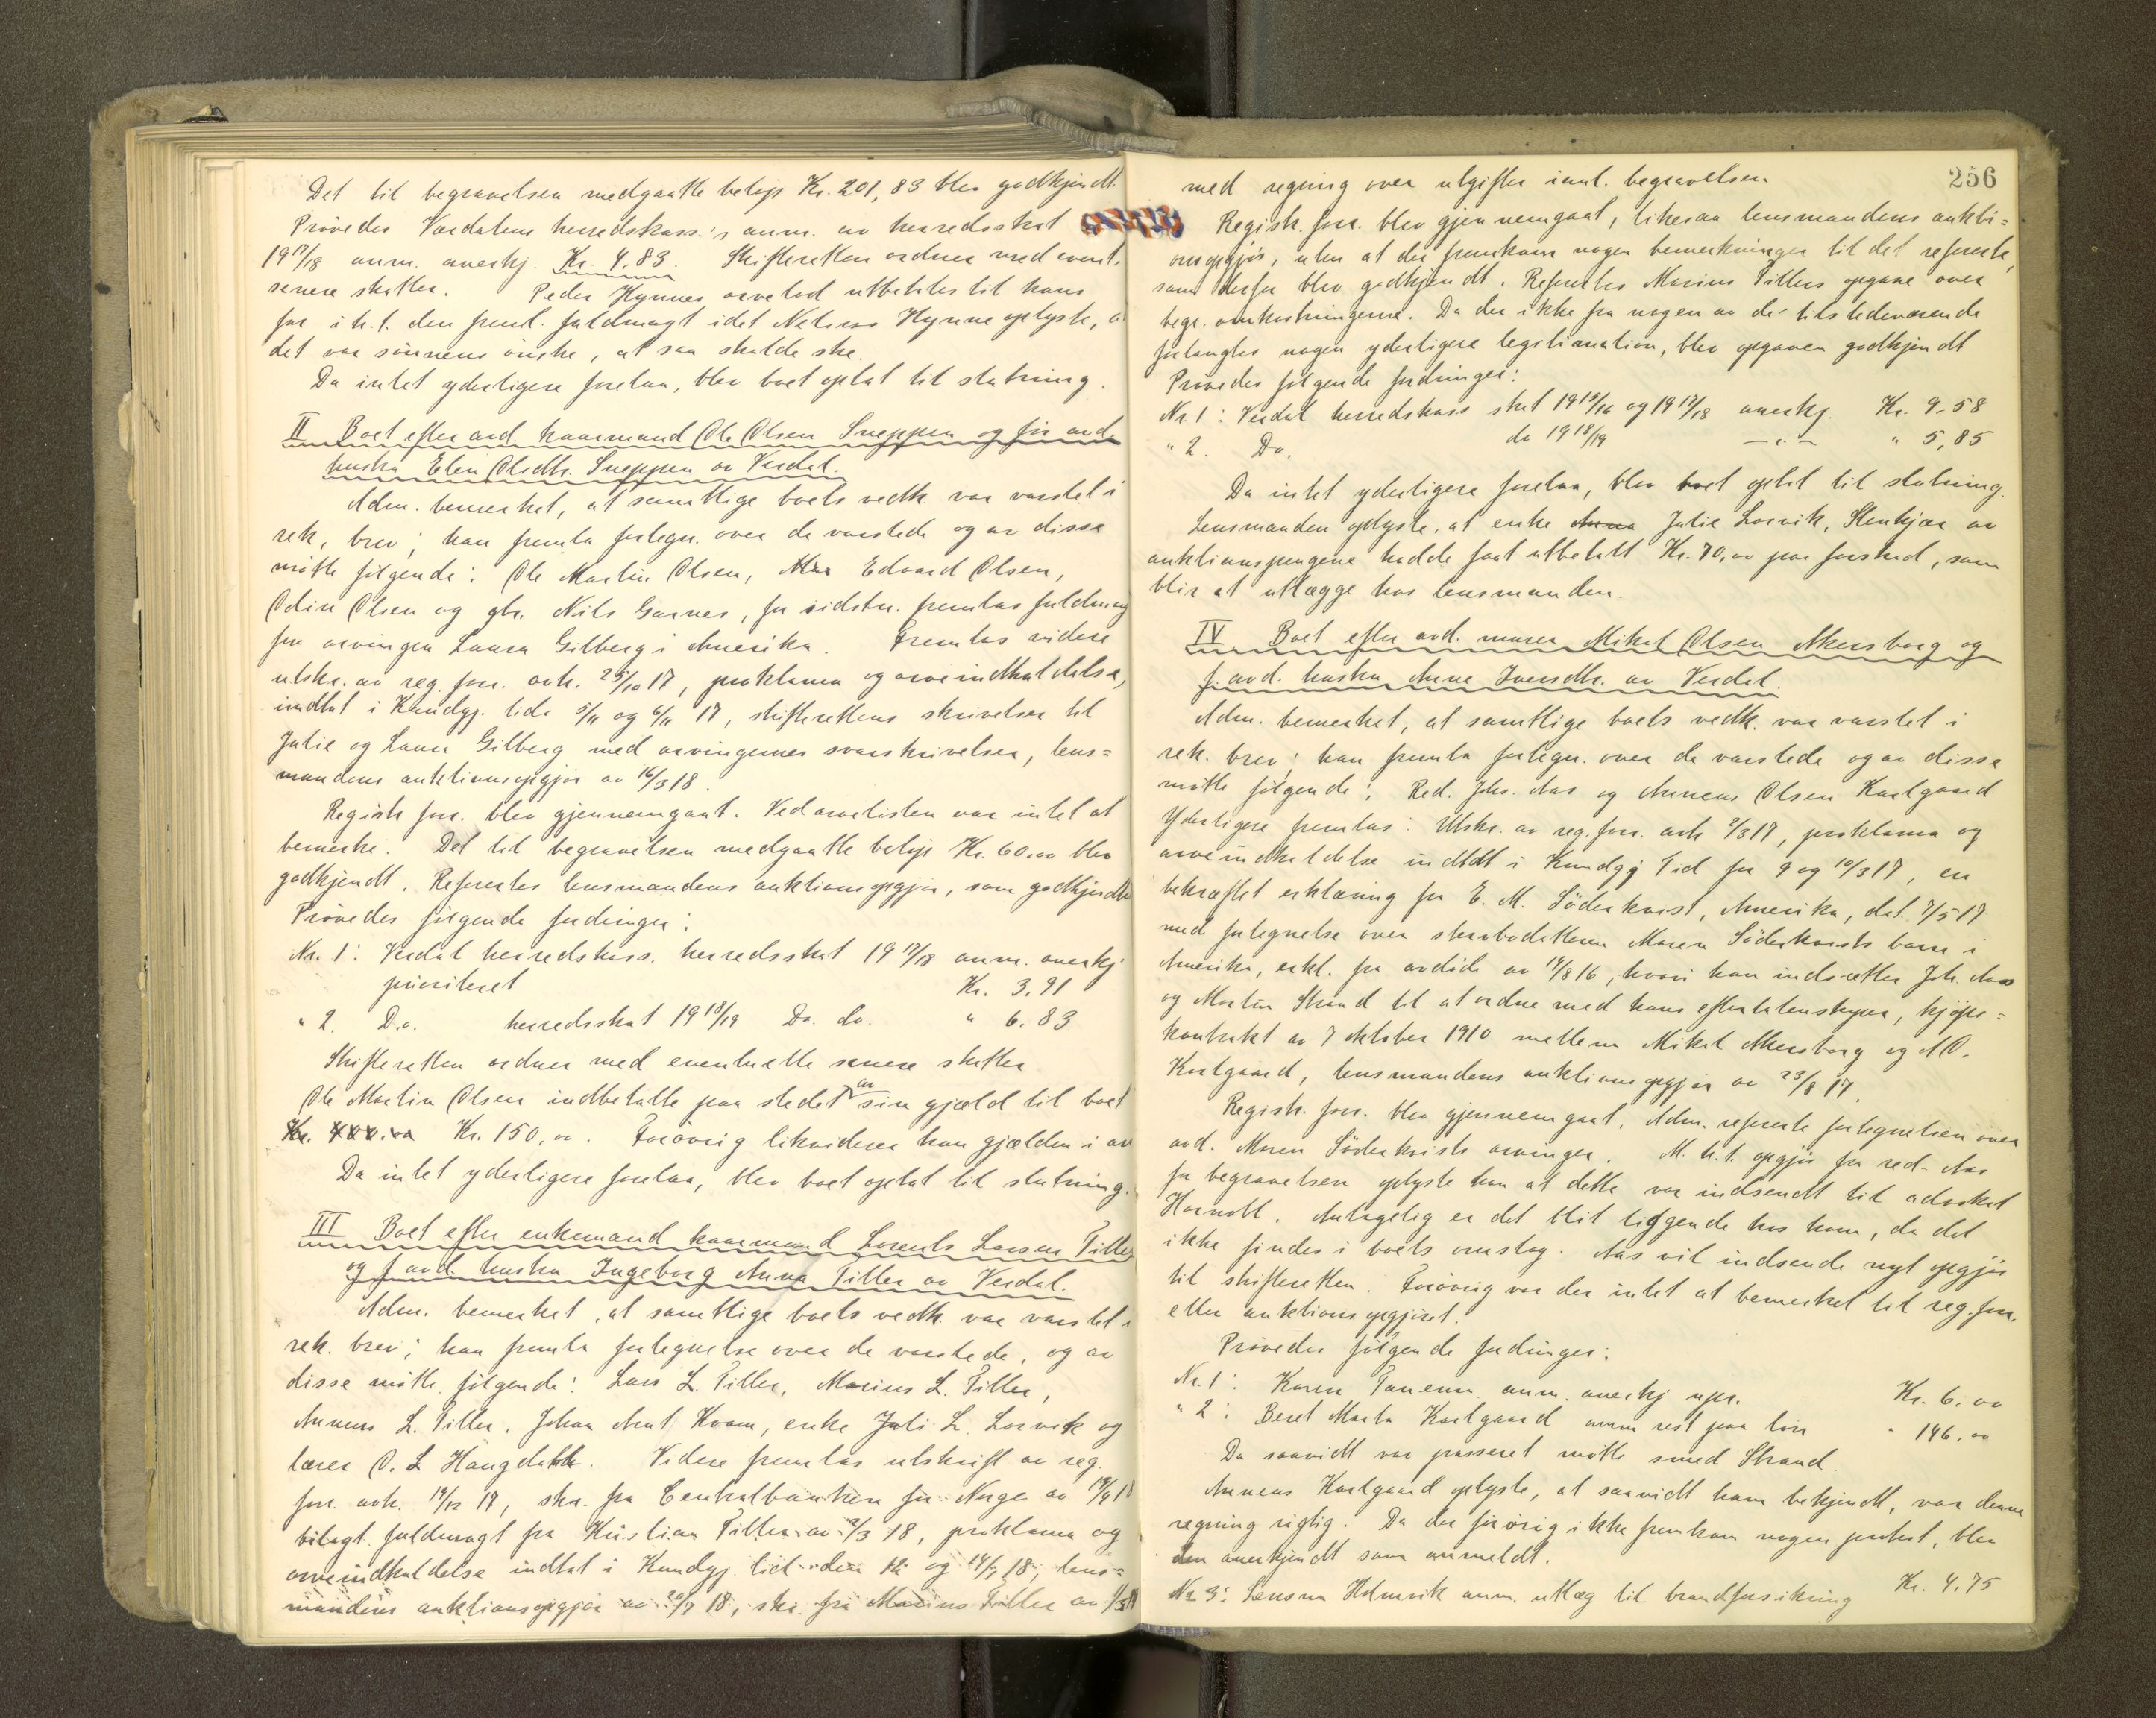 Det til begravelsen medgaatte beløp Kr. 201,83 blev godkjendt.
Prøvedes Værdalens herredskass.'s anm. av herredsskat
19 17/18 anm. anerkj. Kr. 4,83. Skifteretten ordner med event.
senere skatter. Peder Hynnes arvelod utbetales til hans
far i h.t. den freml. fuldmagt idet Nelius Hynne oplyste, a
det var sønnens ønske, at saa skulde ske.
Da intet yderligere forelaa, blev boet optat til slutning.
II Boet efter avd. kaarmand Ole Olsen Sneppen og før avd.
hustru Elen Olsdtr. Sneppen av Verdal.
Adm. bemerket, at samtlige boets vedk. var varslet i
rek. brev; han fremla fortegn. over de varslede og av disse
møtte følgende: Ole Martin Olsen, Edvard Olsen,
Odin Olsen og gbr. Nils Garnes, for sidstn. fremlas fuldmag
fra arvingen Laura Gilberg i Amerika. Fremlas videre
utskr. av reg. forr. avh. 25/10 17, proklama og arveindkaldelse,
indtat i Kundgj. tide 5/11 og 6/11 17, skifterettens skrivelser til
Julie og Laura Gilberg med arvingernes svarskrivelser, lens=
mandens auktionsopgjør av 16/3 18.
Registr. forr. blev gjennemgaat. Ved arvelisten var intet at
bemerke. Det til begravelsen medgaatte beløp Kr. 60,00 blev
godkjendt. Referertes lensmandens auktionsopgjør, som godkjendtes
Prøvedes følgende fordringer:
Nr. 1: Verdal herredskass. herredsskat 19 17/18 anm. anerkj
prioriteret Kr. 3,91
" 2. Do. herredsskat 19 18/19 Do. do. " 6.83
Skifteretten ordner med eventuelle senere skatter
Ole Martin Olsen indbetalte paa stedet av sin gjæld til boet
Kr. 400.00 Kr. 150,00. Forøvrig likviderer han gjælden i arv
Da intet yderligere forelaa, blev boet optat til slutning.
III Boet efter enkemand kaarmand Lorents Larsen Tiller
og f. avd. hustru Ingeborg Anna Tiller av Verdal.
Adm. bemerket, at samtlige boets vedk. var varslet i
rek. brev; han fremla fortegnelse over de varslede, og av
disse møtte følgende: Lars L. Tiller, Marius L. Tiller,
Annæus L. Tiller, Johan Arnt Kvam, enke Juli L. Lorvik og
lærer O. L. Haugdahl. Videre fremlas utskrift av reg.
forr. avh. 14/12 17, skr. fra Centralbanken for Norge av 19/4 18
bilagt fuldmagt fra Kristian Tiller av 2/3 18, proklama og
arveindkaldelse indtat i Kundgj. tid den og 14/1 18, lens=
mandens auktionsopgjør av 20/7 18, skr. fra Marius Tiller av
256
med regning over utgifter i anl. begravelsen
Registr. forr. blev gjennemgaat, likesaa lensmandens auktio=
onsopgjør, uten at der fremkom nogen bemerkninger til det refererte,
som derfor blev godkjendt. Refertes Marius Tillers opgave over
begr. omkostningerne. Da der ikke fra nogen av de tilstedeværende
forlangtes nogen yderligere legitimation, blev opgaven godkjendt
Prøvedes følgende fordringer:
Nr. 1: Verdal herredskass skat 19 15/16 og 19 17/18 anerkj. Kr. 9.58
" 2. Do. do 19 18/19 —"— " 5,85
Da intet yderligere forelaa, blev boet optat til slutning.
Lensmanden oplyste, at enke Anna Julie Lorvik, Stenkjær av
auktionspengene hadde faat utbetalt Kr. 70,00 paa forskud, som
blir at utlægge hos lensmanden.
IV Boet efter avd. murer Mikal Olsen Akersborg og
f. avd. hustru Anne Iversdtr. av Verdal.
Adm. bemerket, at samtlige boets vedk. var varslet i
rek. brev; han fremla fortegn. over de varslede og av disse
møtte følgende: Red. Johs. Aas og Annæus Olsen Karlgaard
Yderligere fremlas: Utskr. av reg. forr. avh 2/3 17, proklama og
arveindkaldelse indtat i Kundgj Tid for 9 og 10/3 17, en
bekræftet erklæring fra E. M. Söderkvist, Amerika, dat. 7/5 17
med fortegnelse over skarbodatteren Maren Söderkvists barn i
Amerika, erkl. fra avdøde av 14/8 16, hvori han indsætter Joh. Aas
og Martin Strand til at ordne med hans efterlatenskaper, kjøpe=
kontrakt av 7 oktober 1910 mellem Mikal Akersborg og A O.
Karlgaard, lensmandens auktionsopgjør av 23/8 17.
Registr. forr. blev gjennemgaat. Adm. refererte fortegnelsen over
avd. Maren Söderkvists arvinger. M. h. t. opgjør fra red. Aas
for begravelsen oplyste han at dette var indsendt til advokat
. Antagelig er det blit liggende hos ham, da det
ikke findes i boets omslag. Aas vil indsende nyt opgjør
til skifteretten. Forøvrig var der intet at bemerket til reg. forr.
eller auktionsopgjøret.
Prøvedes følgende fordringer:
Nr. 1: Karen anm. anerkj upr. Kr. 6,00
" 2: Beret Marta Karlgaard anm rest paa løn " 146,00
Da saavidt var passeret møtte smed Strand.
Annæus Karlgaard oplyste, at saavidt ham bekjendt, var denne
regning rigtig. Da der forøvrig ikke fremkom nogen protest, blev
den anerkjendt som anmeldt.
Nr. 3: Lensm Holmvik anm. utlæg til brandforsikring Kr. 4,75